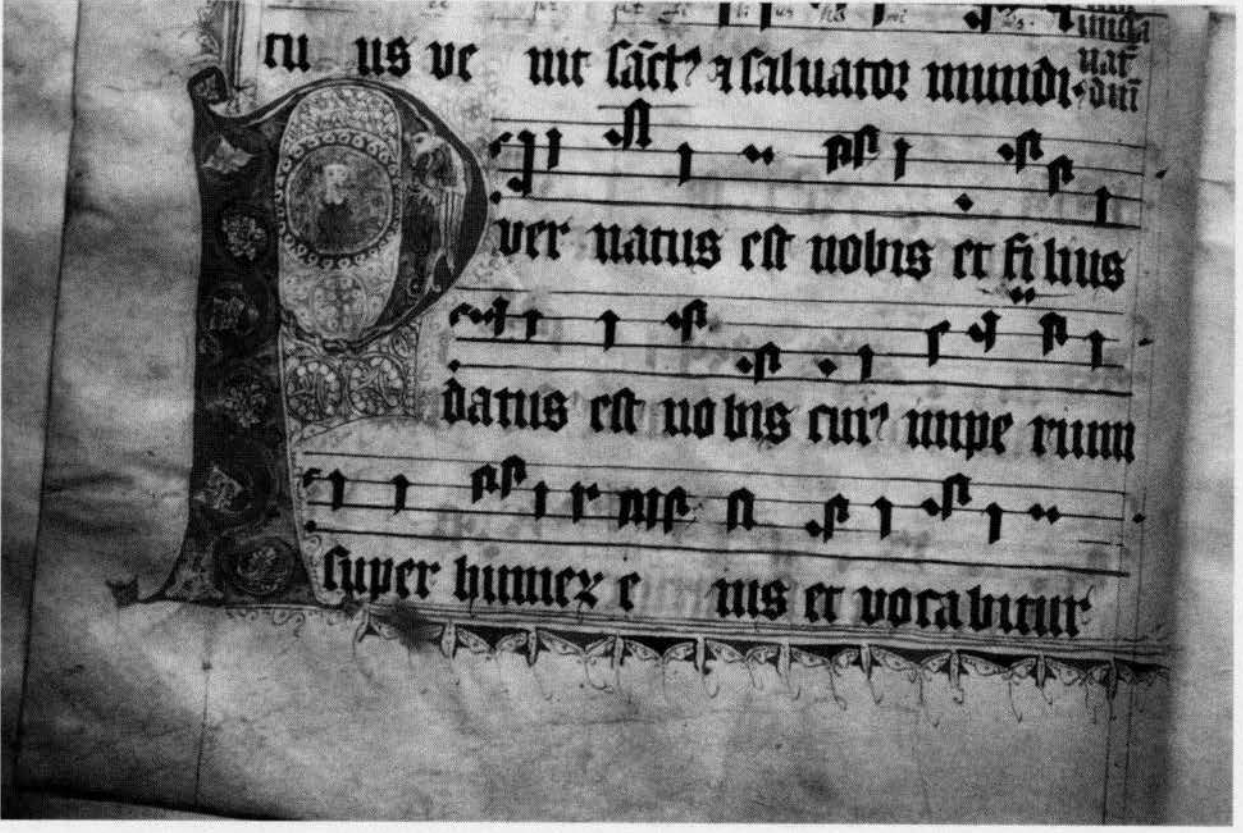 cu us ve nit sāctꝰ ⁊ saluator mundi.
nat̄
dni̅
Puer natus est nobis et fi lius
datus est no bis cuiꝰ impe rium
super humeꝝ e ius et vocabitur